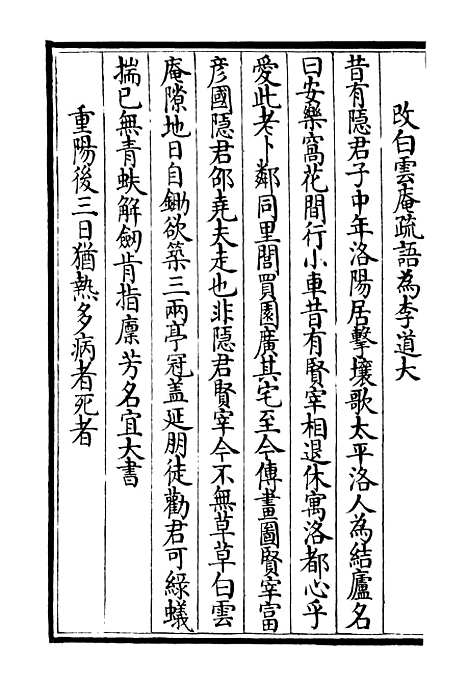 改白雲庵疏語為李道大
昔有隱君子中年洛陽居擊壤歌太平洛人為結廬名
曰安樂窩花間行小車昔有賢宰相退休寓洛都心乎
愛此老卜鄰同里閭買園廣其宅至今傳畫圖賢宰富
彥國隱君邵堯夫走也非隱君賢宰今不無草草白雲
庵隙地日自鋤欲築三兩亭冠盖延朋徒勸君可綠蟻
揣已無青蚨解劒肯指廩芳名宜大書
重陽後三日猶熱多病者死者